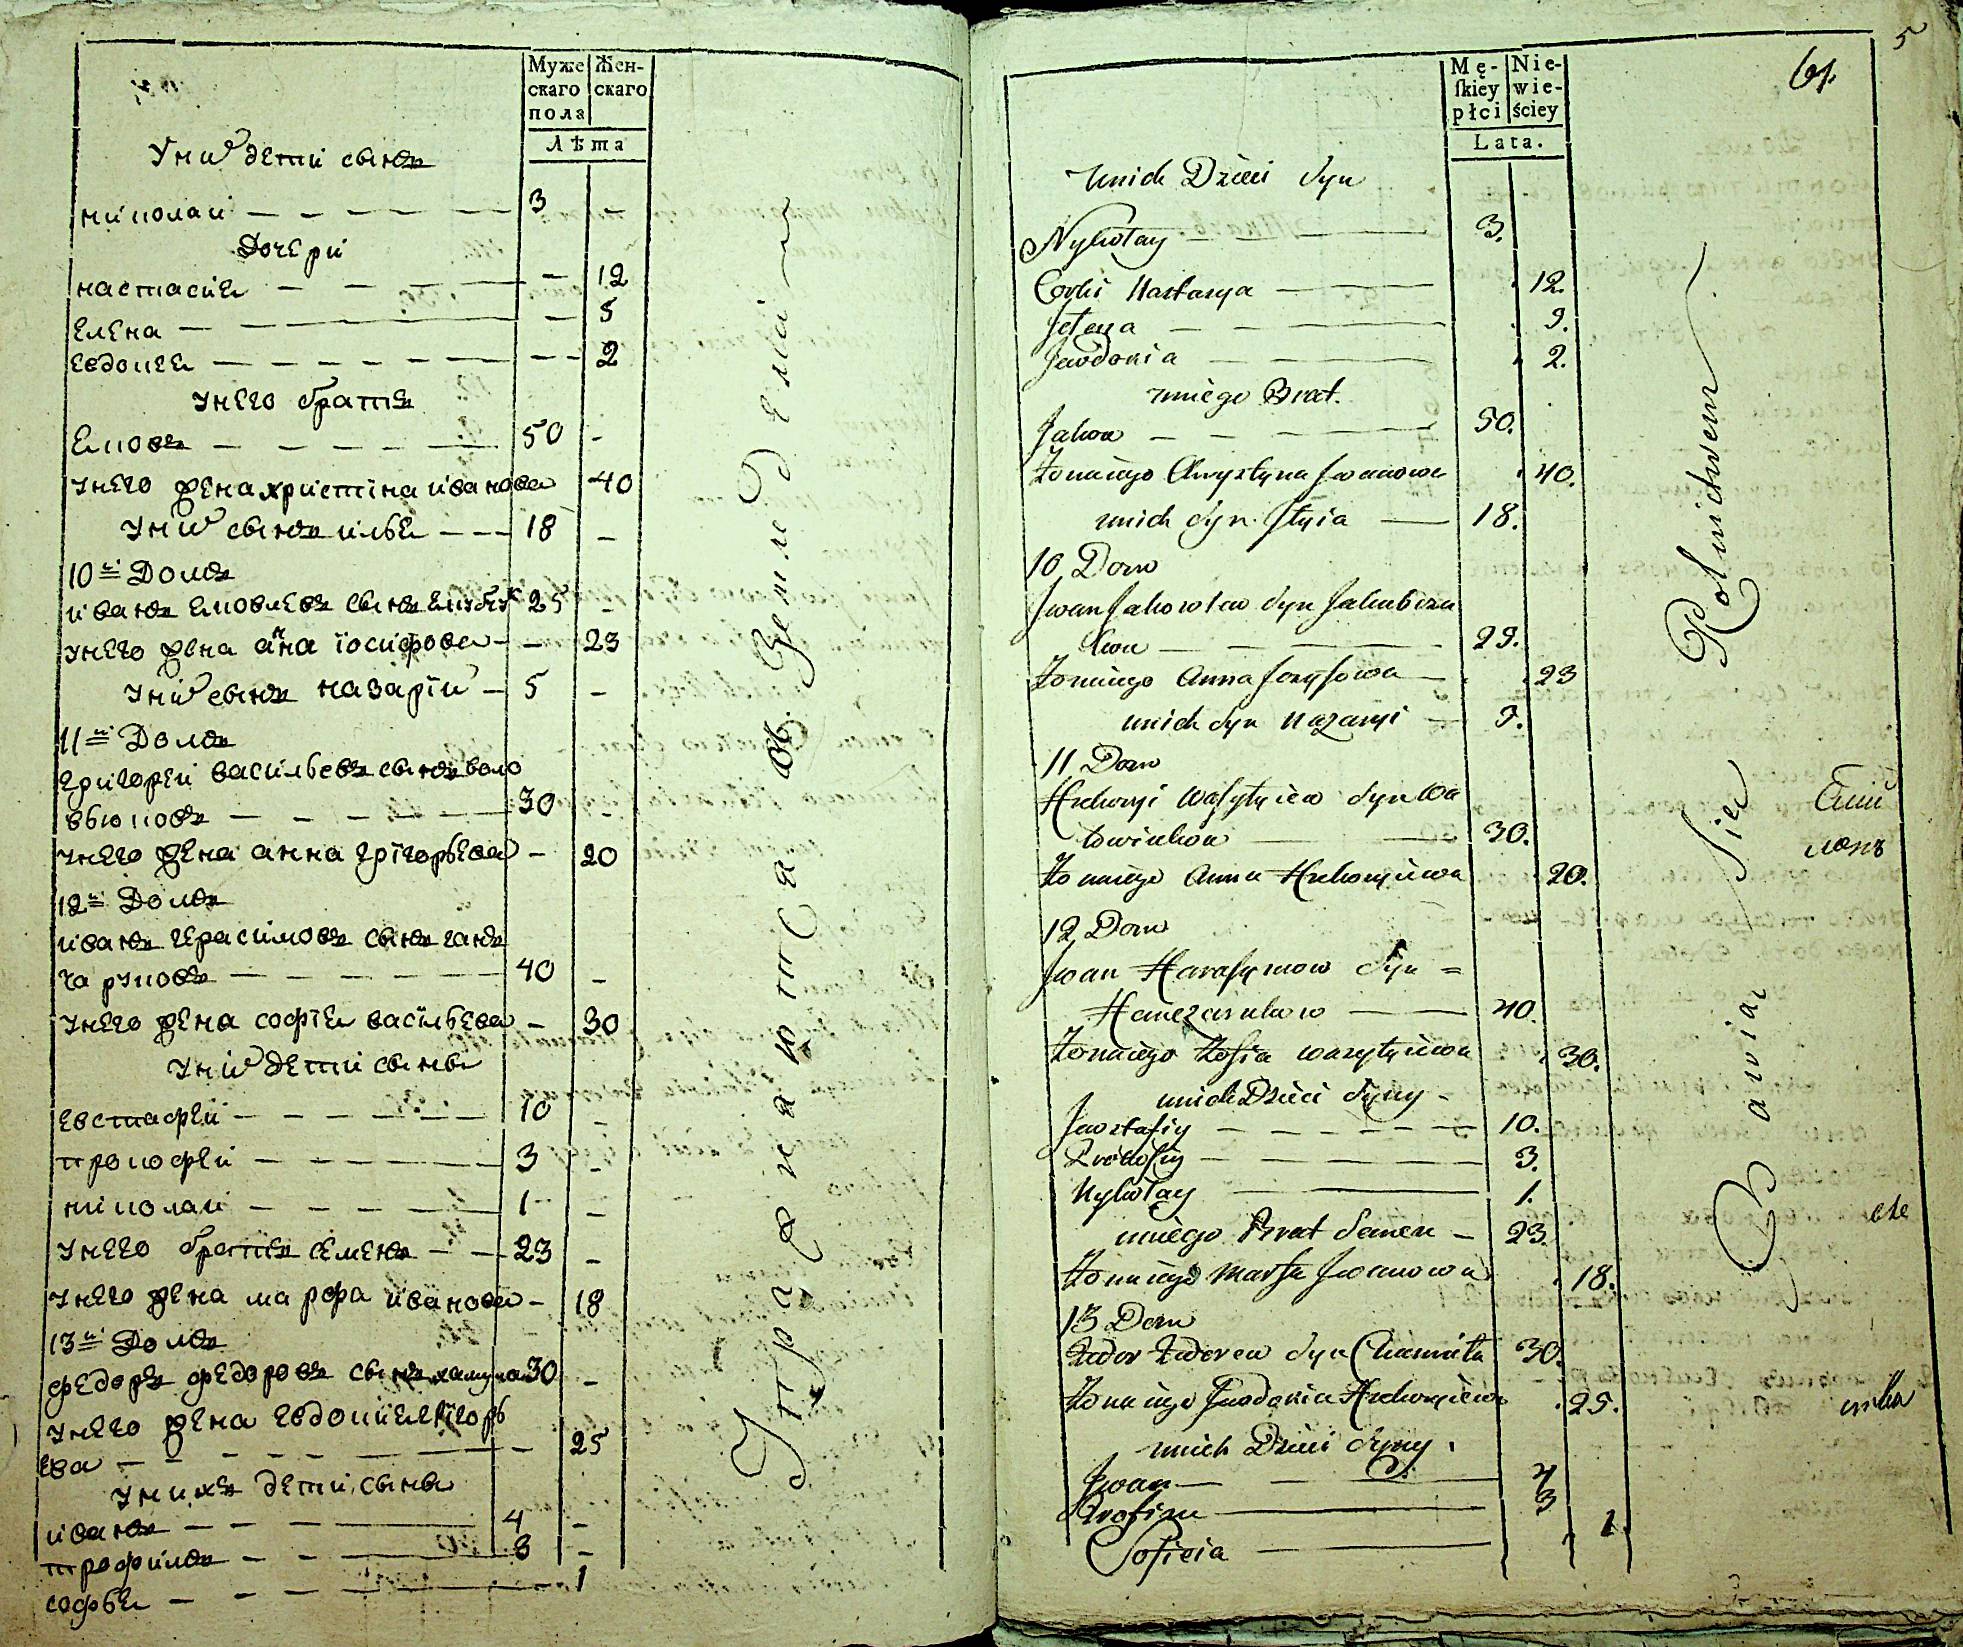 Муже Жен-
скаго скаго
пола
Лѣта
У них дети сынъ
николаи — 3 —
Дочери
настасия — — 12
елена — — 5
евдокея — — 2
у него братъ
яковъ — 50 —
у него жена христина иванова 40
у них сынъ илья — 18 —
10й Домъ
иванъ яковлевъ сынъ 25 —
у него жена анна іосифова — — 23
у них сынъ назарїи — 5 —
11й Домъ
григореи васильевъ сынъ воло
вьюковъ — 30 —
у него жена анна грїгорьева — 20
12й Домъ
иванъ герасимовъ сынъ ганъ
чаруковъ — 40 —
у него жена софїя васїльева — 30
у них дети сыны
евстафеи — 10 —
трокофеи — 3 —
николаи — 1 —
у него братъ семенъ — 23 —
у него жена марфа иванова — 18
13й Домъ
федоръ федоровъ сынъ 30 —
у него жена евдокия грїгорь
ева — 25
у нихъ дети сыны
иванъ — 4 —
трофимъ — 3 —
софья — 1
Упражняются въ Земледелии
5
61.
Mę- Nie-
ſkiey wie-
płci ściey
Lata.
unich Dzieci Syn
Nykołay — 3.
Corki Nastasya — 12.
Jełena — 5.
Jewdokia — 2.
uniego Brat.
Jakow — 50.
Żona iego Chrystyna Jwanowa 40.
unich Syn Jłyia — 18.
10 Dom
Jwan Jakowlew Syn Jakubczu
kow — 25.
Żona iego Anna Jozyfowa — 23
unich Syn Nazaryi — 5.
11 Dom
Hrehoryi Wasylyiew Syn Wa
łowiukow — 30.
Żona iego Anna Hrehoryiewa 20.
12 Dom
Jwan Harasymow Syn =
Hanczarukow — 40.
Żona iego Zofia Wasylyiewa 30.
unich Dzieci Syny
Jewstafiy — 10.
Nykołay — 1.
uniego Brat Semen — 23.
Żona iego Marfa Jwanowa 18.
13 Dom
Fedor Fedorew Syn 30.
Żona iego Jewdokia Hrehoryiewa 25.
unich Dzieci Syny.
Jwan — 4
Trofim — 3
Sofieia — 1.
Bawiąc Sie Rolnictwem